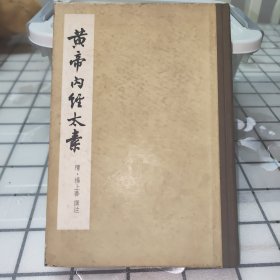 黄帝内经太素
隋·楊上善 撰注